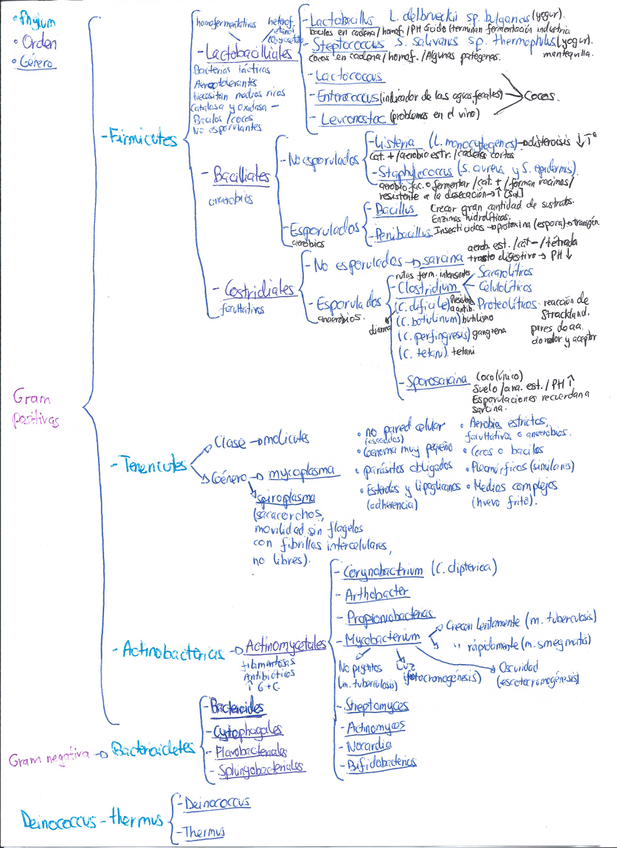 • Phylum
• Orden
• Género
Gram positivas
- Firmicutes
homofermentativas
- Lactobacilliales
Bacterias lácticas
Aerotolerantes
Necesitan medios ricos
Catalasa y oxidasa -
Bacilos / cocos
No esporulantes
- Lactobacillus L. delbrueckii sp. bulgaricus (yogur).
bacilos en cadena / homof. / PH ácido (terminan fermentación industria
- Streptococcus S. salivarius sp. thermophilus (yogur).
mantequilla.
cocos en cadena / homof. / Algunas patógenas.
- Lactococcus
- Enterococcus (indicador de las aguas fecales)
- Leuconostoc (problemas en el vino)
Cocos.
- Bacilliales
- No esporulados
- Listeria (L. monocytogenes) → listeriosis ↓Tª
cat. + / aerobio estr. / cadenas cortas
- Staphylococcus (S. aureus y S. epidermis).
aerobio fac. o fermentar / cat. + / forman racimos /
resistente a la desecación → ↑ [Sal]
- Esporulados
aerobios
- Bacillus Crecer gran cantidad de sustratos.
Enzimas hidrolíticas.
- Penibacillus Insecticidas → protoxina (espora) →
- Clostridiales
facultativos
- No esporulados → sarcina
aerob. est. / cat - / tétrada
tracto digestivo → PH ↓
- Esporulados
anaerobios.
- Clostridium
Sacarolíticos
Celulolíticos
Proteolíticos - reacción de
Strackland.
pares de aa.
donador y aceptor
(C. dificile)
diarrea
(C. botulinum) butulismo
(C. perfingresis) gangrena
(C. tetani) tetani
- Sporosarcina
coco (único)
suelo / ana. est. / PH ↑
Esporulaciones recuerdan a
sarcina.
- Tenericutes
Clase → molicutes
Género → mycoplasma
spiroplasma
(sacacorchos,
movilidad sin flagelos
con fibrillas intercelulares,
no libres).
• No pared celular
• Genoma muy pequeño
• parásitos obligados
• Esteroles y lipoglicanos
(adherencia)
• Aerobios estrictos,
facultativos o anaerobios.
• Cocos o bacilos
• Pleomórficos (similares)
• Medios complejos
(huevo frito).
- Actinobacterias → Actinomycetales
filamentosas
Antibióticos
↑ G + C
- Corynobactrium (C. dipterica)
- Arthobacter
- Propionobacterias
- Mycobacterium
Crecen lentamente (m. tuberculosis)
" rápidamente (m. smegmata)
No pigmtos
(m. tuberculosis)
Luz
(fotocromogénesis)
Oscuridad
(escotocromogénesis)
- Streptomyces
- Actinomyces
- Nocardia
- Bifidobacterias
Gram negativa → Bacteroidetes
- Bacteroides
- Cytophagales
- Flavobacteriales
- Sphingobacteriales
Deinococcus - thermus
- Deinococcus
- Thermus